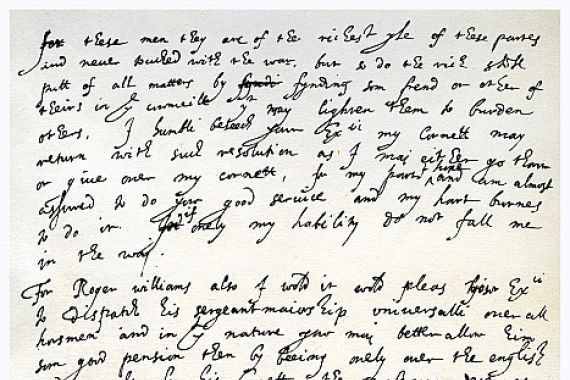 for these men they are of the richest yle of these partes
and never touched with the war. but so do the rich still
putt of all matters by fynding som frend or other of
theirs in ye councile yt may lighten them to burden
others. I humbli beseech your Exii my Cornett may
return with such resolution as I mai either go thorow
or give over my cornett, for my part honor and am almost
assured to do your good service and my hart burnes
to do it. if onely my hability do not fall me
in the way.
For Roger williams also I wold it wold pleas your Exii
to dispatch his sergeantmaiorship universalli over all
horsmen and in yt nature your mai better allow him
som good pension then by beeing onely over the english